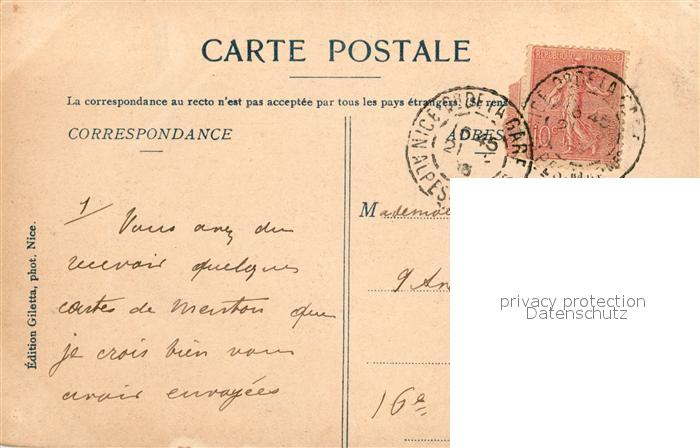 CARTE POSTALE
La correspondance au recto n'est pas acceptée par tous les pays étrangers. (Se rens
CORRESPONDANCE
ADRES
RÉPUBLIQUE FRANÇAISE
10c
NICE GARE DE LA GARE
6 45
21
ALPES
1/ Vous avez du
recevoir quelques
cartes de Menton que
je crois bien vous
avoir envoyées
Mademoi
9 An
16e
privacy protection
Datenschutz
Édition Giletta, phot. Nice.